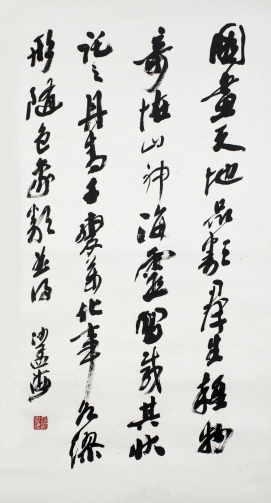 圖畫天地品類羣生雜物
奇怪山神海靈寫載其狀
託之丹青千變萬化事各繆
形隨色象類曲得
沙孟海